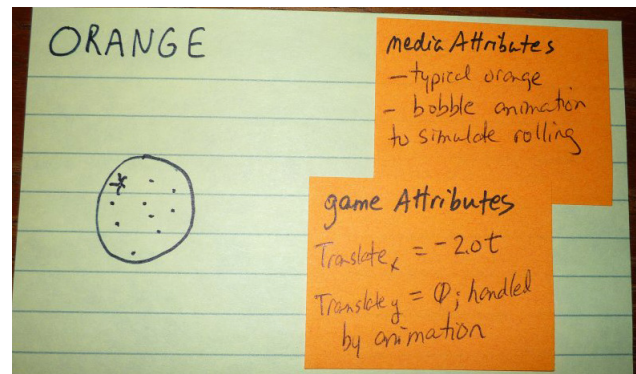 ORANGE
media Attributes
- typical orange
- bobble animation
to simulate rolling
game Attributes
Translatex = - 2.0t
Translatey = 0; handled
by animation